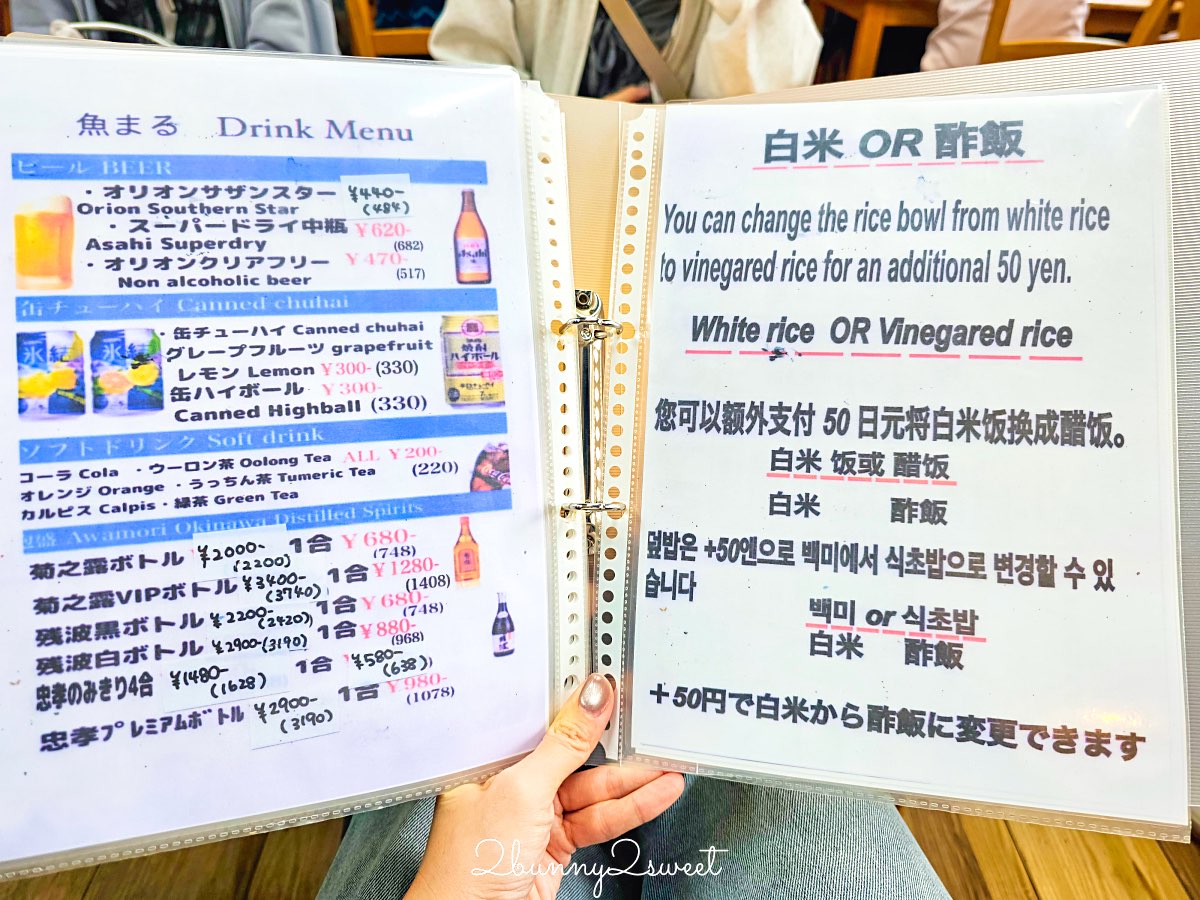 魚まる Drink Menu
ビール BEER
・オリオンサザンスター ¥440-
Orion Southern Star (484)
・スーパードライ中瓶 ¥620-
Asahi Superdry (682)
・オリオンクリアフリー ¥470-
Non alcoholic beer (517)
缶チューハイ Canned chuhai
・缶チューハイ Canned chuhai
グレープフルーツ grapefruit
レモン Lemon ¥300-(330)
缶ハイボール ¥300-
Canned Highball (330)
ソフトドリンク Soft drink
コーラ Cola ・ウーロン茶 Oolong Tea ALL ¥200-
オレンジ Orange ・うっちん茶 Tumeric Tea (220)
カルピス Calpis・緑茶 Green Tea
泡盛 Awamori Okinawa Distilled Spirits
菊之露ボトル ¥2000- 1合 ¥680-
(2200) (748)
菊之露VIPボトル ¥3400- 1合 ¥1280-
(3740) (1408)
残波黒ボトル ¥2200- 1合 ¥680-
(2420) (748)
残波白ボトル ¥2900-(3190) 1合 ¥880-
(968)
忠孝のみきり4合 ¥1480- 1合 ¥580-
(1628) (638)
忠孝プレミアムボトル ¥2900- 1合 ¥980-
(3190) (1078)
氷結
氷結
Asahi
焼酎
ハイボール
白米 OR 酢飯
You can change the rice bowl from white rice
to vinegared rice for an additional 50 yen.
White rice OR Vinegared rice
您可以额外支付 50 日元将白米饭换成醋饭。
白米 饭或 醋饭
白米 酢飯
덮밥은 +50엔으로 백미에서 식초밥으로 변경할 수 있
습니다
백미 or 식초밥
白米 酢飯
＋50円で白米から酢飯に変更できます
2bunny2sweet